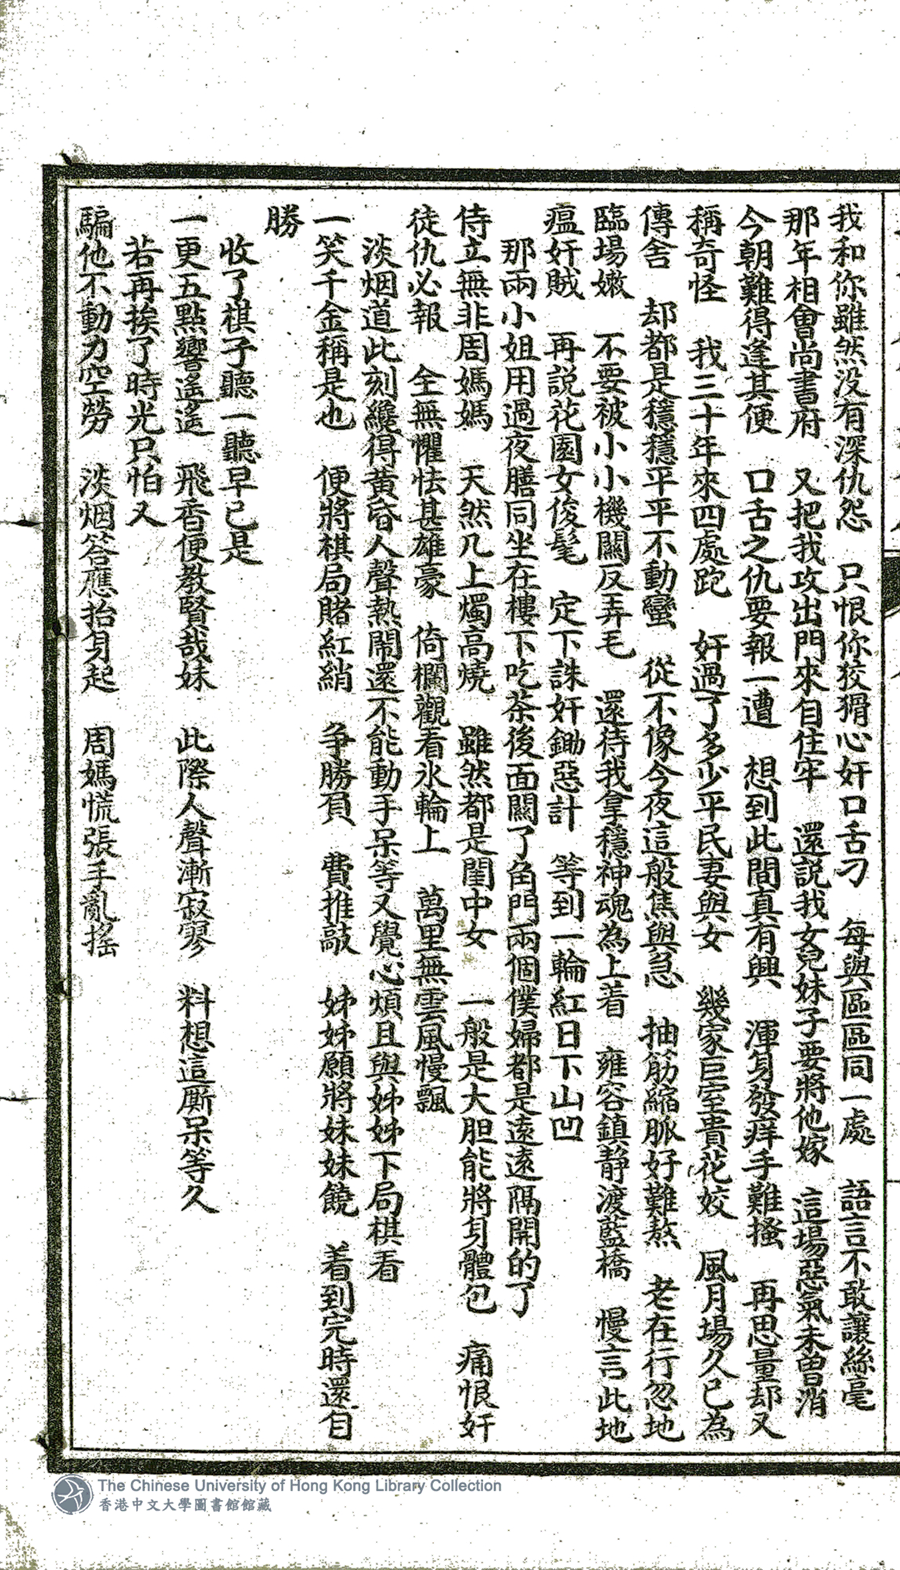 我和你雖然没有深仇怨　只恨你狡猾心奸口舌刁　每與區區同一處　語言不敢讓絲毫
那年相會尚書府　又把我攻出門來自住牢　還説我女兒妹子要將他嫁　這場惡氣未曾消
今朝難得逢其便　口舌之仇要報一遭　想到此間真有興　渾身發痒手難搔　再思量却又
稱奇怪　我三十年來四處跑　奸過了多少平民妻與女　幾家巨室貴花姣　風月場久已為
傳舍　却都是穩穩平平不動蠻　從不像今夜這般焦與急　抽筋縮脈好難熬　老在行忽地
臨場嫩　不要被小小機關反弄毛　還待我拿穩神魂為上着　雍容鎮靜渡藍橋　慢言此地
瘟奸賊　再説花園女俊髦　定下誅奸鋤惡計　等到一輪紅日下山凹
那兩小姐用過夜膳同坐在樓下吃茶後面關了角門兩個僕婦都是遠遠隔開的了
侍立無非周媽媽　天然几上燭高燒　雖然都是閨中女　一般是大胆能將身體包　痛恨奸
徒仇必報　全無懼怯甚雄豪　倚欄觀看氷輪上　萬里無雲風慢飄
淡烟道此刻纔得黄昏人聲熱鬧還不能動手呆等又覺心煩且與姊姊下局棋看
一笑千金稱是也　便將棋局賭紅綃　争勝負　費推敲　姊姊願將妹妹饒　着到完時還自
勝
收了棋子聽一聽早已是
一更五點響遙遙　飛香便教賢哉妹　此際人聲漸寂寥　料想這厮呆等久
若再挨了時光只怕又
騙他不動刀空勞　淡烟答應抬身起　周媽慌張手亂搖
The Chinese University of Hong Kong Library Collection
香港中文大學圖書館館藏